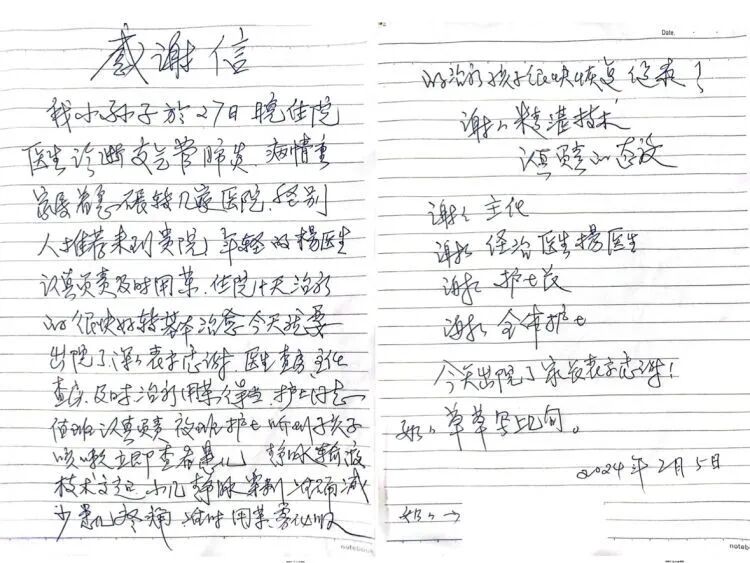 感谢信
我小孙子於27日晚住院
医生诊断支气管肺炎.病情重
家属着急辗转几家医院.经别
人推荐来到贵院,年轻的楊医生
认真负责及时用药.住院十天治疗
的很快好转基本治愈今天就要
出院了.深深表示志谢.医生查房主任
查房.及时治疗用药得当 护士同志
值班认真负责 夜班护士听到孩子
咳嗽立即查看患儿 静脉输液
技术 小儿静脉穿刺准确减
少患儿疼痛 准时用药.雾化吸
Date.
的治疗孩子很快恢复起来!
谢谢精湛技术
认真负责的态度
谢谢主任
谢谢经治医生楊医生
谢谢护士长
谢谢全体护士
今天出院了家长表示志谢!
草草写上几句。
2024年2月5日
notebook
notebook